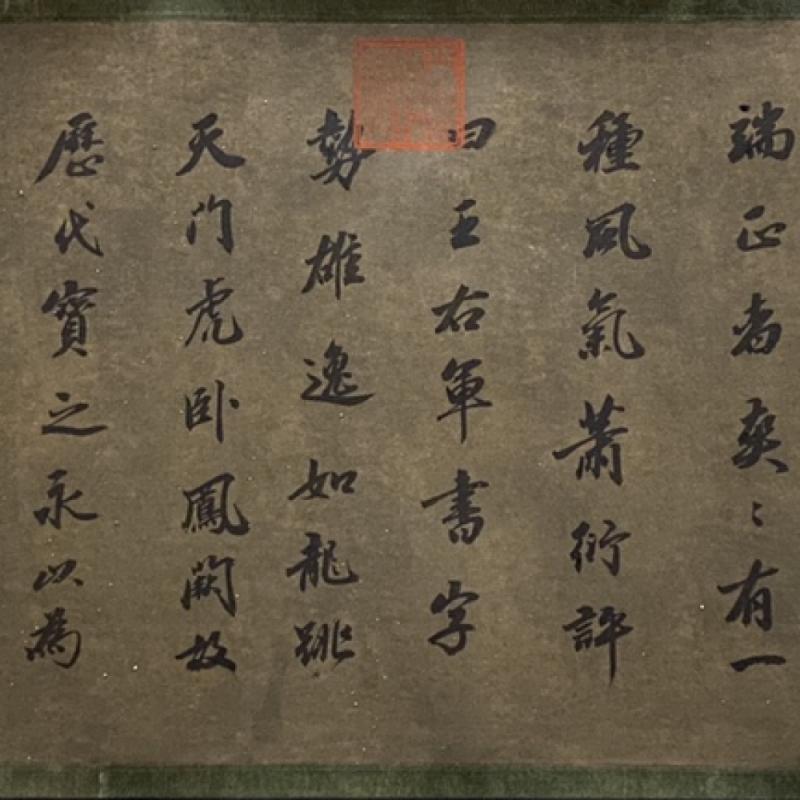 端正者爽〻有一
種風氣蕭衍評
曰王右軍書字
勢雄逸如龍跳
天门虎卧鳳闕故
歷代寶之永以為